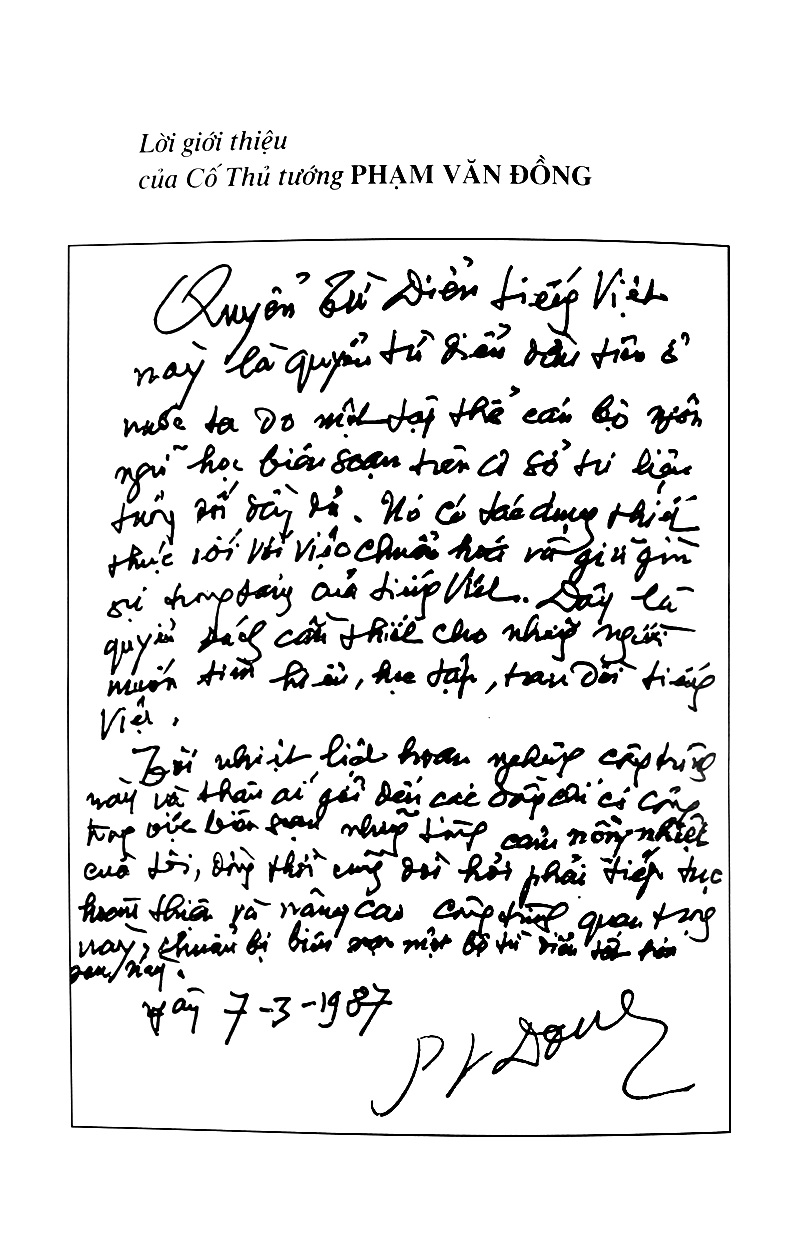 Lời giới thiệu
của Cố Thủ tướng PHẠM VĂN ĐỒNG
Quyển Từ Điển tiếng Việt
này là quyển từ điển đầu tiên ở
nước ta do một tập thể cán bộ ngôn
ngữ học biên soạn trên cơ sở tư liệu
tương đối đầy đủ. Nó có tác dụng thiết
thực đối với việc chuẩn hoá và giữ gìn
sự trong sáng của tiếng Việt. Đây là
quyển sách cần thiết cho những người
muốn tìm hiểu, học tập, trau dồi tiếng
Việt.
Tôi nhiệt liệt hoan nghênh công trình
này và thân ái gửi đến các đồng chí có công
trong việc biên soạn những tình cảm nồng nhiệt
của tôi, đồng thời cũng đòi hỏi phải tiếp tục
hoàn thiện và nâng cao công trình quan trọng
này, chuẩn bị biên soạn một bộ từ điển tốt hơn
sau này.
ngày 7-3-1987
PV Dong